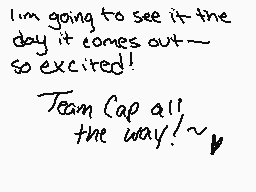 I'm going to see it the
day it comes out~
so excited!
Team Cap all
the way!~ ♥